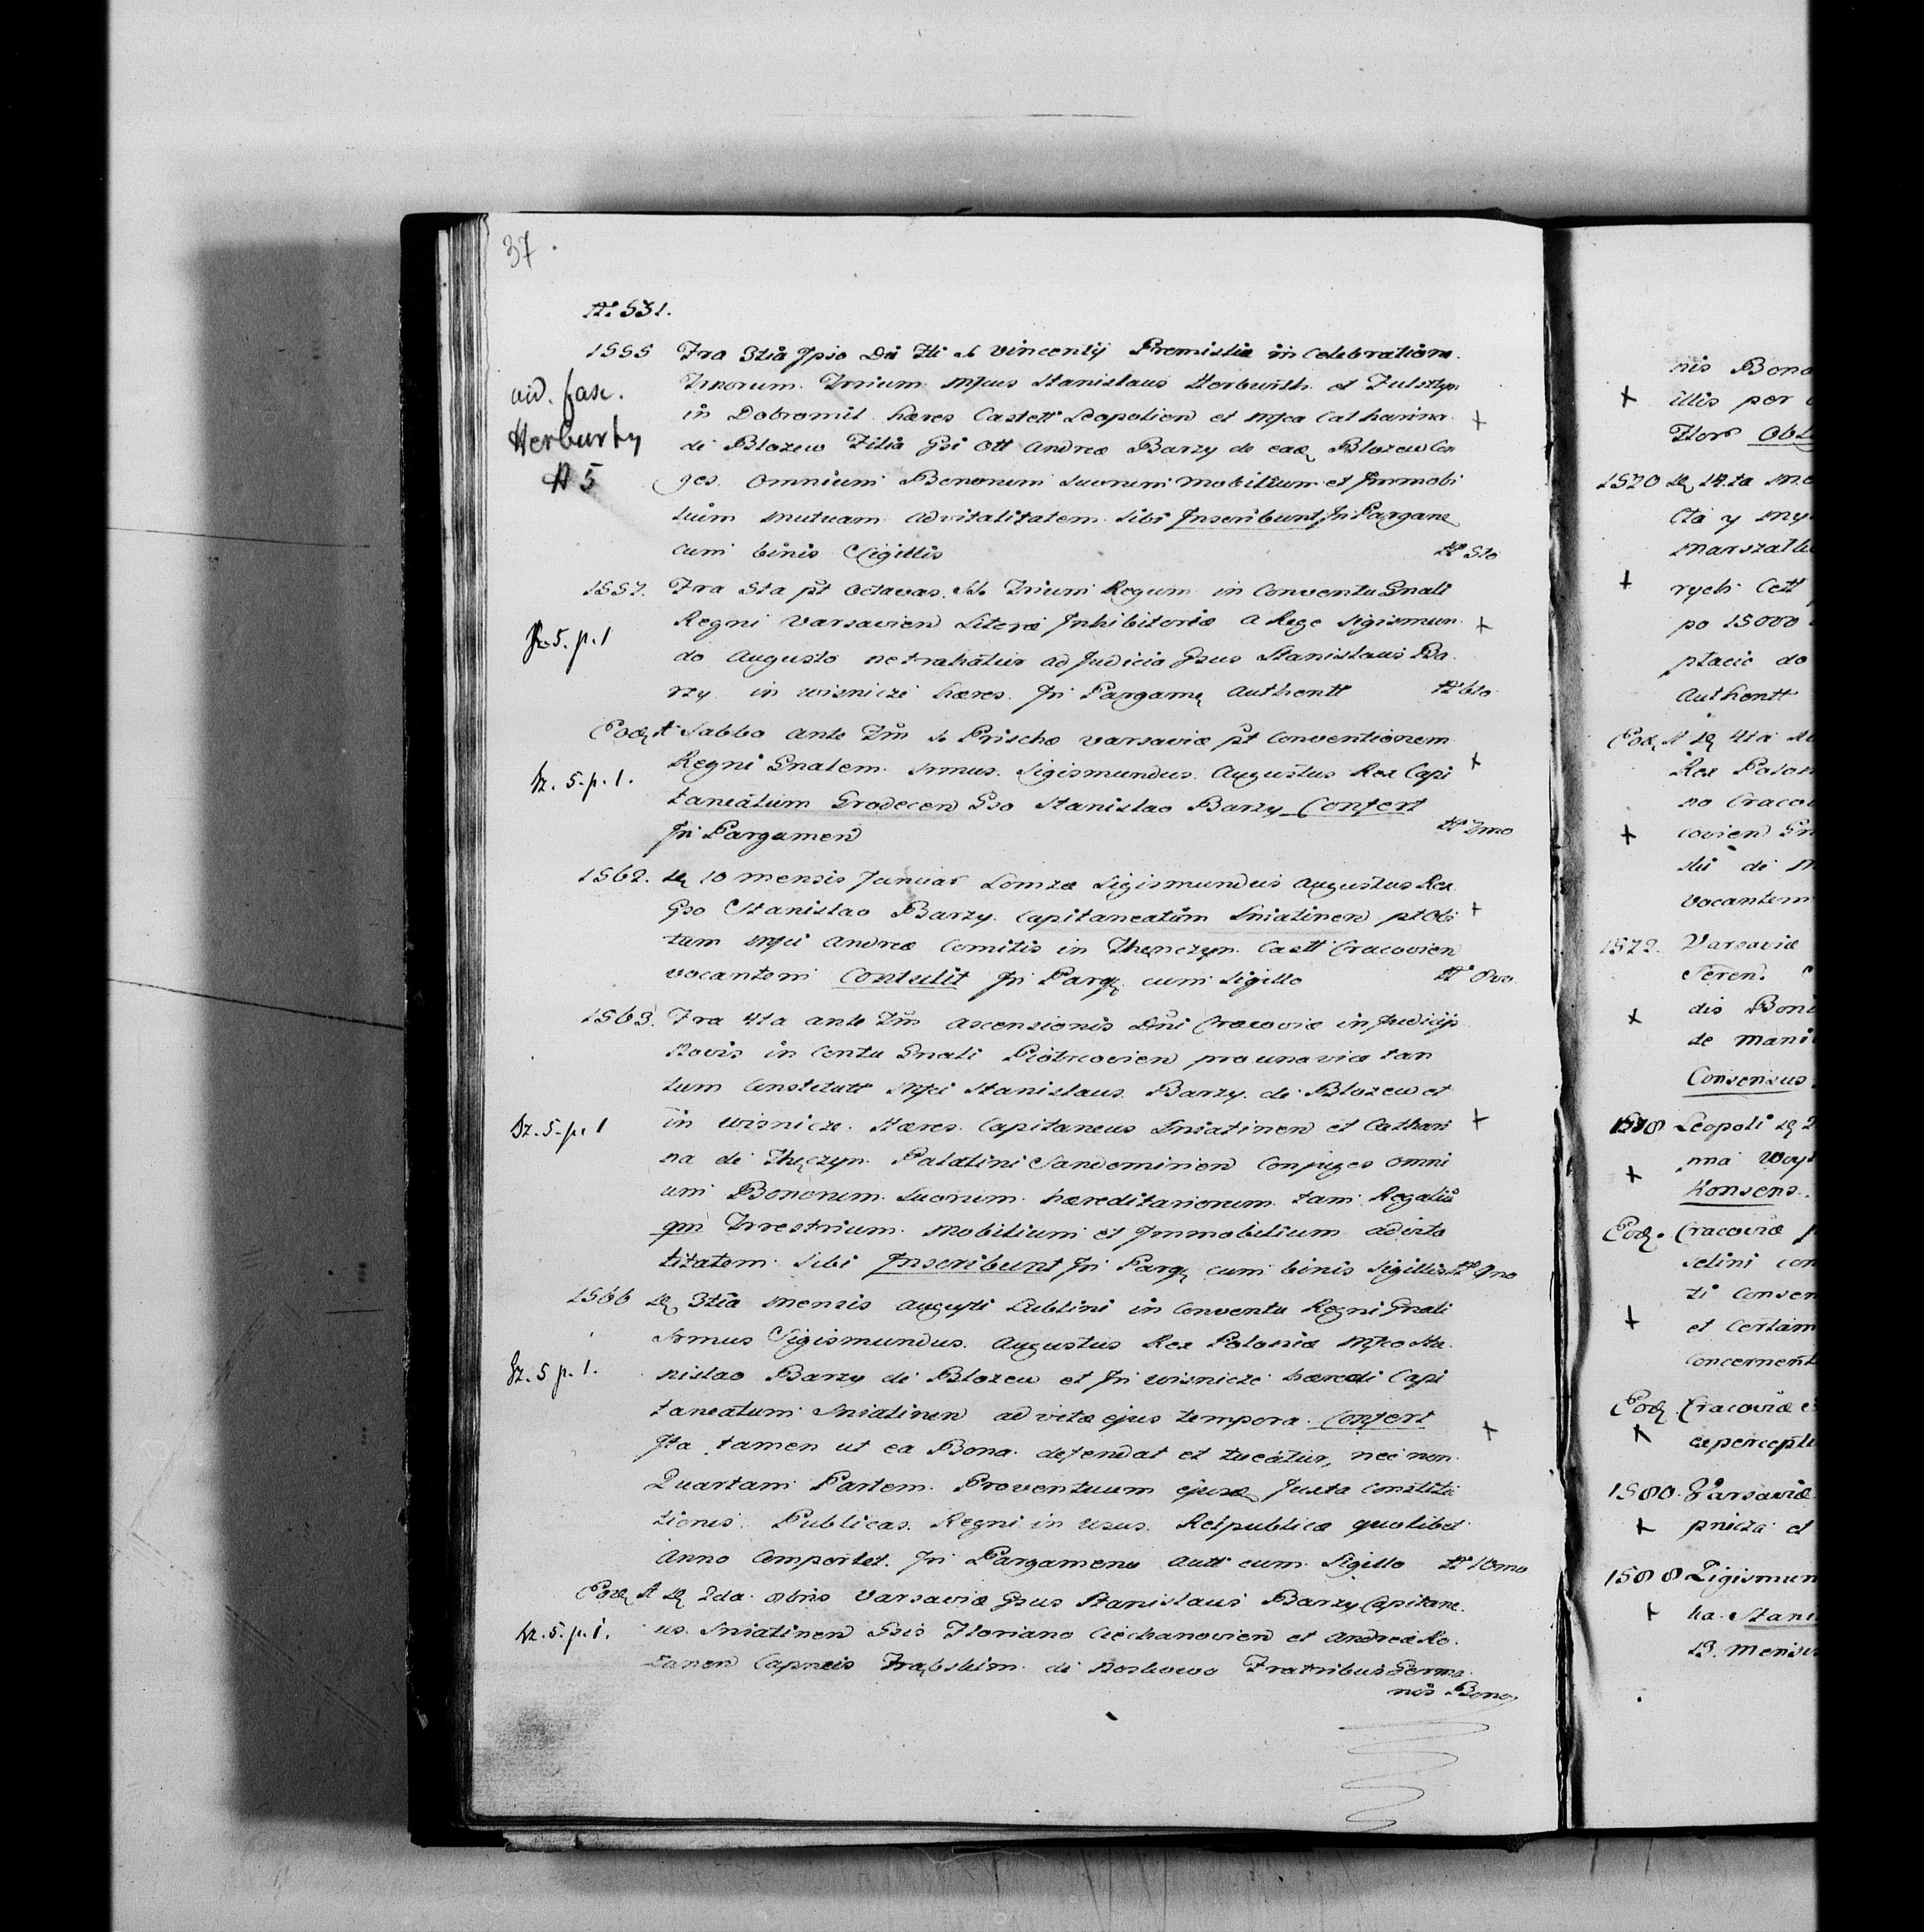 37.
N: 531.
1555 Fra 3tia Ipso Die Fti s. Vincentij Premislia in Celebratione
Trnorum Trrium Mfcus Stanislaus Herburth et Fulsztyn
in Dobromil hæres Castell Leopolien et Mfca Catharina +
vid. fasc.
Herburty
N 5
de Blozew Filia Gsi Ott Andreæ Barzy de eadē Blozew Con
ges. Omnium Bonorum Suorum Mobilium et Immobi
lium mutuam advitalitatem Sibi Inscribunt In Pargane
cum binis Sigillis Nº 5to
1557. Fra 5ta pt Octavas SS. Trium Regum in Conventu Gnali
Regni Varsavien Literæ Inhibitoriæ a Rege Sigismun +
fz. 5. p. 1
do Augusto ne trahatur ad Judicia Gsus Stanislaus Ba
rzy in Wisnicze hæres. In Pargamę Authentt Nº 6to
Eodę Aº Sabbo ante Fm S. Priscæ Varsaviæ pt Conventionem
Regni Gnalem Srmus Sigismundus Augustus Rex Capi +
fz. 5. p. 1.
taneatum Grodecen Gso Stanislao Barzy Confert
In Pargamen Nº 7mo
1562. dę 10 mensis Januar Lomzæ Sigismundus Augustus Rex
Gso Stanislao Barzy Capitaneatum Sniatinen pt Obi +
tum Mfci Andreæ Comitis in Thenczyn Castt Cracovien
vocantem Contulit In Pargę cum Sigillo Nº 8vo
1563. Fra 4ta ante Fm Ascensionis Dni Cracoviæ in Judicijs
Novis in Contu Gnali Piotrcovien pro una vice tan
tum Constitutt Mfci Stanislaus Barzy de Blozew et
fz. 5. p. 1
in Wisnicze Hæres Capitaneus Sniatinen et Cathari +
na de Thęczyn Palatini Sandomirien Conjuges omni
um Bonorum Suorum hæreditariorum tam Regaliū
qm Trrestrium Mobilium et Immobilium advita
litatem Sibi Inscribunt In Pargę cum binis Sigillis Nº 9no
1566 dę 3tia mensis Augusti Lublini in Conventu Regni Gnali
Srmus Sigismundus Augustus Rex Poloniæ Mfco Sta
fz. 5 p. 1.
nislao Barzy de Blozew et In Wisnicze hæredi Capi
taneatum Sniatinen ad vitæ ejus tempora Confert +
Ita tamen ut ea Bona defendat et tueatur, nec non
Quartam Partem Proventuum ejusdę Juxta Constitu
tiones Publicas Regni in usus Reipublicæ quolibet
Anno Comportet. In Pargameno Autt cum Sigillo Nº 10mo
Eodę A dę 2da 8bris Varsaviæ Gsus Stanislaus Barzy Capitane
fz. 5. p. 1.
us Sniatinen Gsis Floriano Ciechanovien et Andreæ Ro
zanen Capneis Fratribus Germa
nis Bono
nis Bono
+ illis per
Flor Obl
1570 dę 14.ta
Marszalk
+ rych Cett
po 15000
ptacie do
Authentt
Eod. A dę 4ta
Rex Polon
no Craco
+ covien Gn
ski de M
vocantem
1572. Varsaviæ
Seren.
+ dis Boni
de mani
Consensus
1578 Leopoli dę 2
+ nna Woy
Konsens.
Eodę. Cracoviæ
selini con
ti Consen
+ et Certam
concernent
Eodę. Cracoviæ
+ deperceptu
1580. Varsaviæ
+ pnicza et
1588 Zigismun
+ ha Stani
13. Mensis